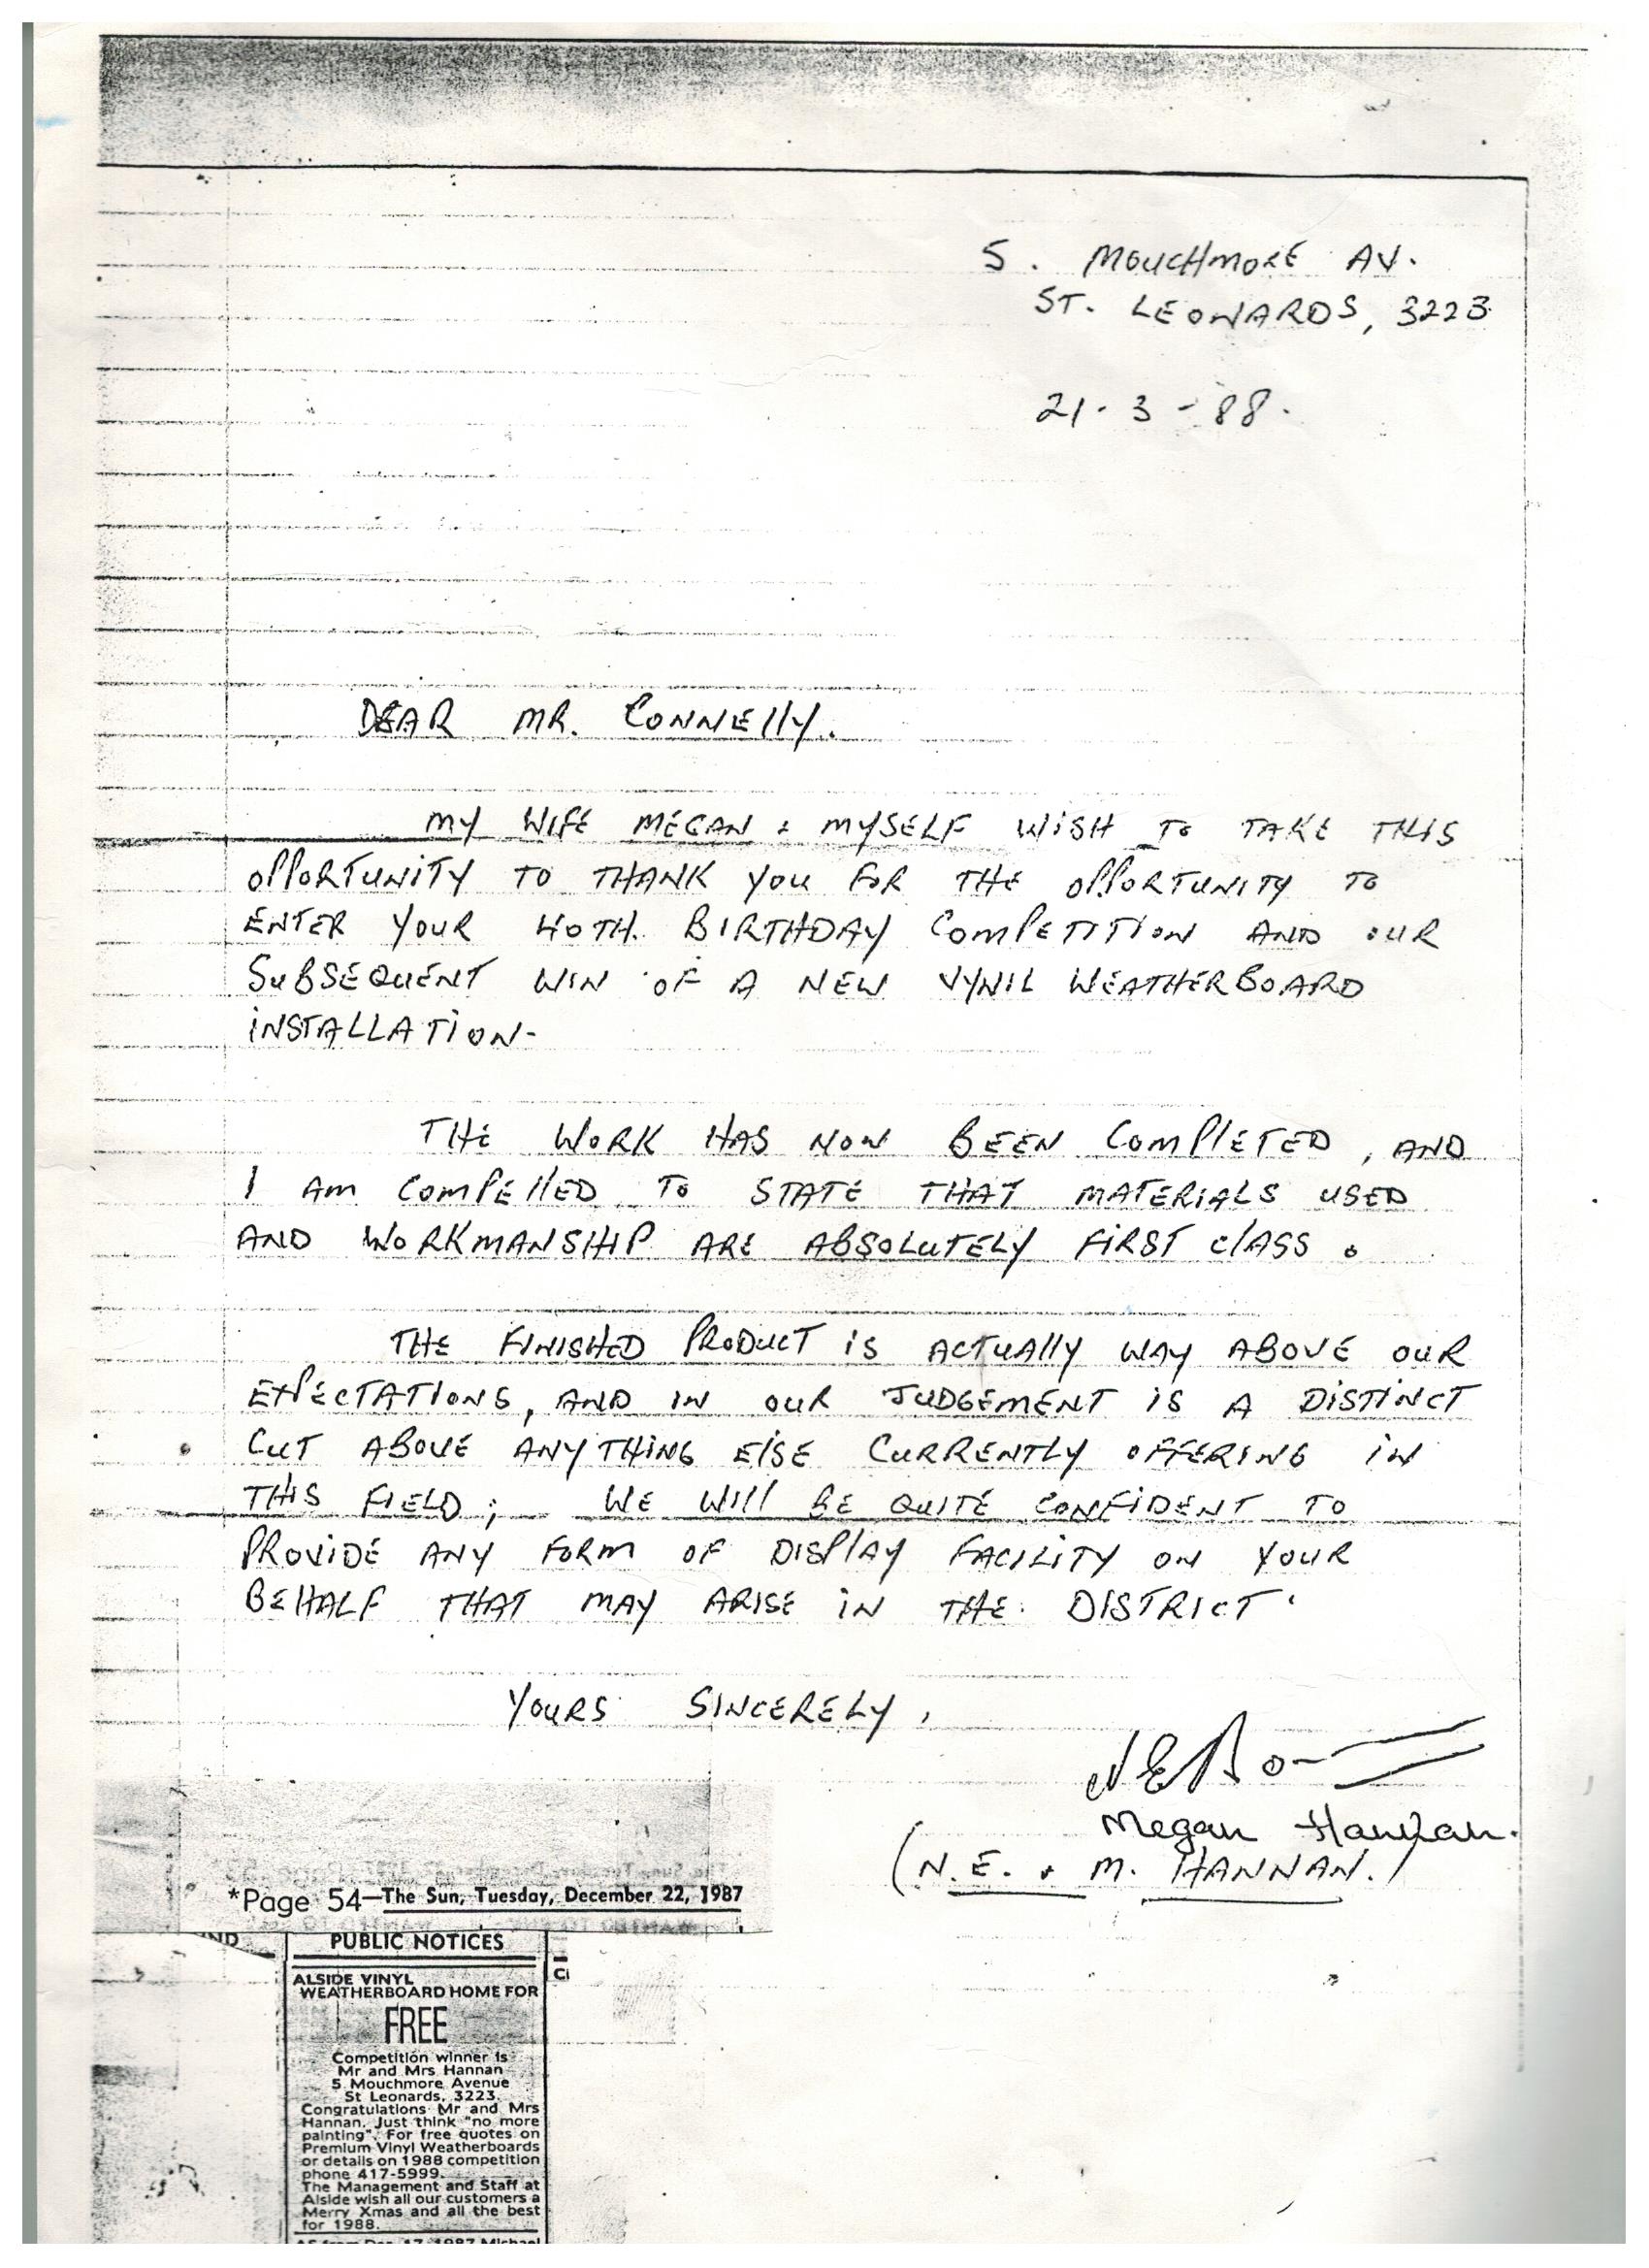 5. MOUCHMORE AV.
ST. LEONARDS, 3223
21-3-88.
DEAR MR. CONNElly.
MY WIFE MEGAN & MYSELF WISH TO TAKE THIS
OPPORTUNITY TO THANK YOU FOR THE OPPORTUNITY TO
ENTER YOUR 40TH. BIRTHDAY COMPETITION AND OUR
SUBSEQUENT WIN OF A NEW VYNIL WEATHERBOARD
INSTALLATION-
THE WORK HAS NOW BEEN COMPLETED, AND
I AM COMPELLED TO STATE THAT MATERIALS USED
AND WORKMANSHIP ARE ABSOLUTELY FIRST CLASS.
THE FINISHED PRODUCT IS ACTUALLY WAY ABOVE OUR
EXPECTATIONS, AND IN OUR JUDGEMENT IS A DISTINCT
CUT ABOVE ANYTHING ELSE CURRENTLY OFFERING IN
THIS FIELD; WE WILL BE QUITE CONFIDENT TO
PROVIDE ANY FORM OF DISPLAY FACILITY ON YOUR
BEHALF THAT MAY ARISE IN THE DISTRICT.
YOURS SINCERELY,
Megan Hannan.
(N.E. & M. HANNAN.)
*Page 54—The Sun, Tuesday, December 22, 1987
PUBLIC NOTICES
ALSIDE VINYL
WEATHERBOARD HOME FOR
FREE
Competition winner is
Mr and Mrs Hannan
5 Mouchmore Avenue
St Leonards, 3223.
Congratulations Mr and Mrs
Hannan. Just think "no more
painting". For free quotes on
Premium Vinyl Weatherboards
or details on 1988 competition
phone 417-5999.
The Management and Staff at
Alside wish all our customers a
Merry Xmas and all the best
for 1988.